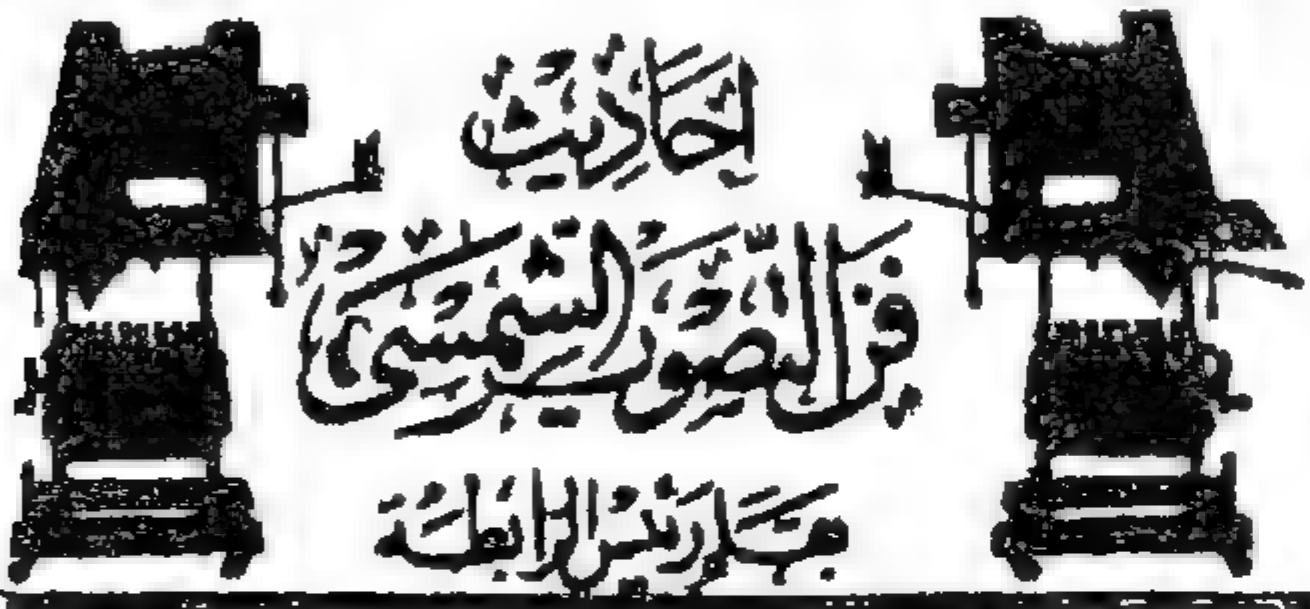 احاديث
فن التصوير الشمسي
رئيس الرابطة